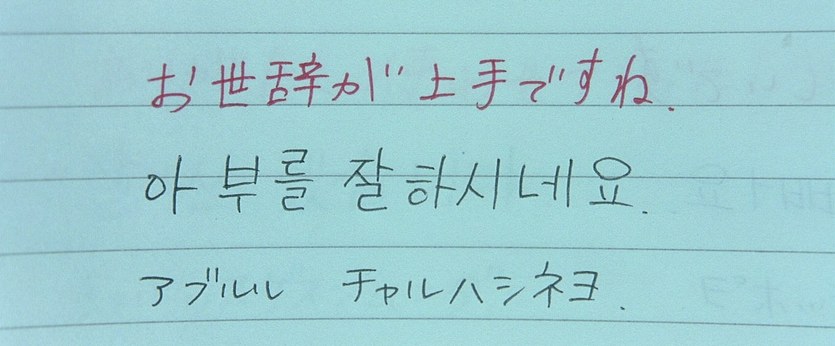 お世辞が上手ですね.
아부를 잘하시네요.
アブルル チャルハシネヨ.